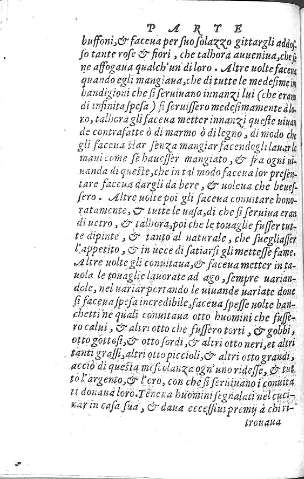 PARTE
buffoni, & faceua per suo solazzo gittargli addos,
so tante rose & fiori, che talhora auueniua, che se
ne affogaua qualch'un di loro. Altre uolte faceua
quando egli mangiaua, che di tutte le medesime im
bandigioni che si seruiuano innanzi lui (che eran
di infinita spesa) si seruissero medesimamente à lo
ro, talhora gli faceua metter innanzi queste uiuan
de contrafatte ò di marmo ò di legno, di modo che
gli faceua star senza mangiar facendogli lauar le
mani come se hauesser mangiato, & fra ogni ui
uanda di queste, che in tal modo faceua lor presen-
tare faceua dargli da bere, & uoleua che beues-
sero. Altre uolte poi gli faceua conuitare hono-
ratamente, & tutte le uasa, di che si seruiua eran
di uetro, & talhora, poi che le touaglie fusser tut-
te dipinte, & tanto al naturale, che suegliasser
l'appetito, & in uece di satiarsi gli mettesse fame.
Altre uolte gli conuitaua, & faceua metter in ta-
uola le touaglie lauorate ad ago, sempre uarian-
dole, nel uariar portando le uiuande uariate doue
si faceua spesa incredibile, faceua spesse uolte ban-
chetti ne quali conuitaua otto huomini che fusse-
ro calui, & altri otto che fussero torti, & gobbi,
otto gottosi, & otto sordi, & altri otto neri, et altri
tanti grassi, altri otto piccioli, & altri otto grandi,
acciò di questa mescolanza ogn'uno ridesse, & tut
to l'argento, & l'oro, con che si seruiuano i conuita
ti donaua loro. Teneua huomini segnalati nel cuci-
nar in casa sua, & daua eccessiui premij à chi ri-
trouaua